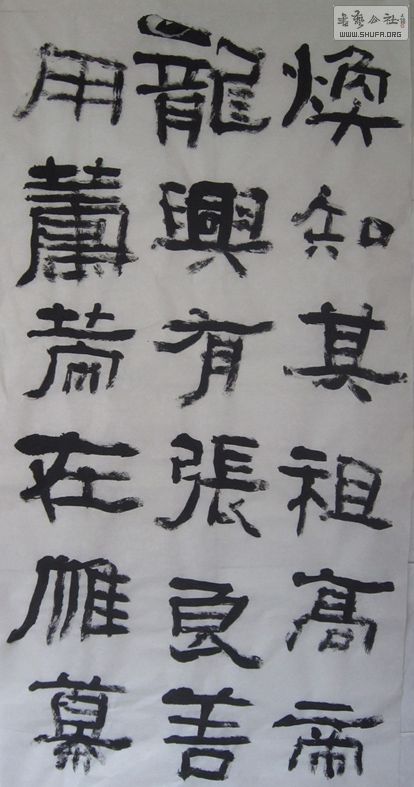 煥知其祖高帝
龍興有張良善
用籌策在帷幕
書藝公社
WWW.SHUFA.ORG